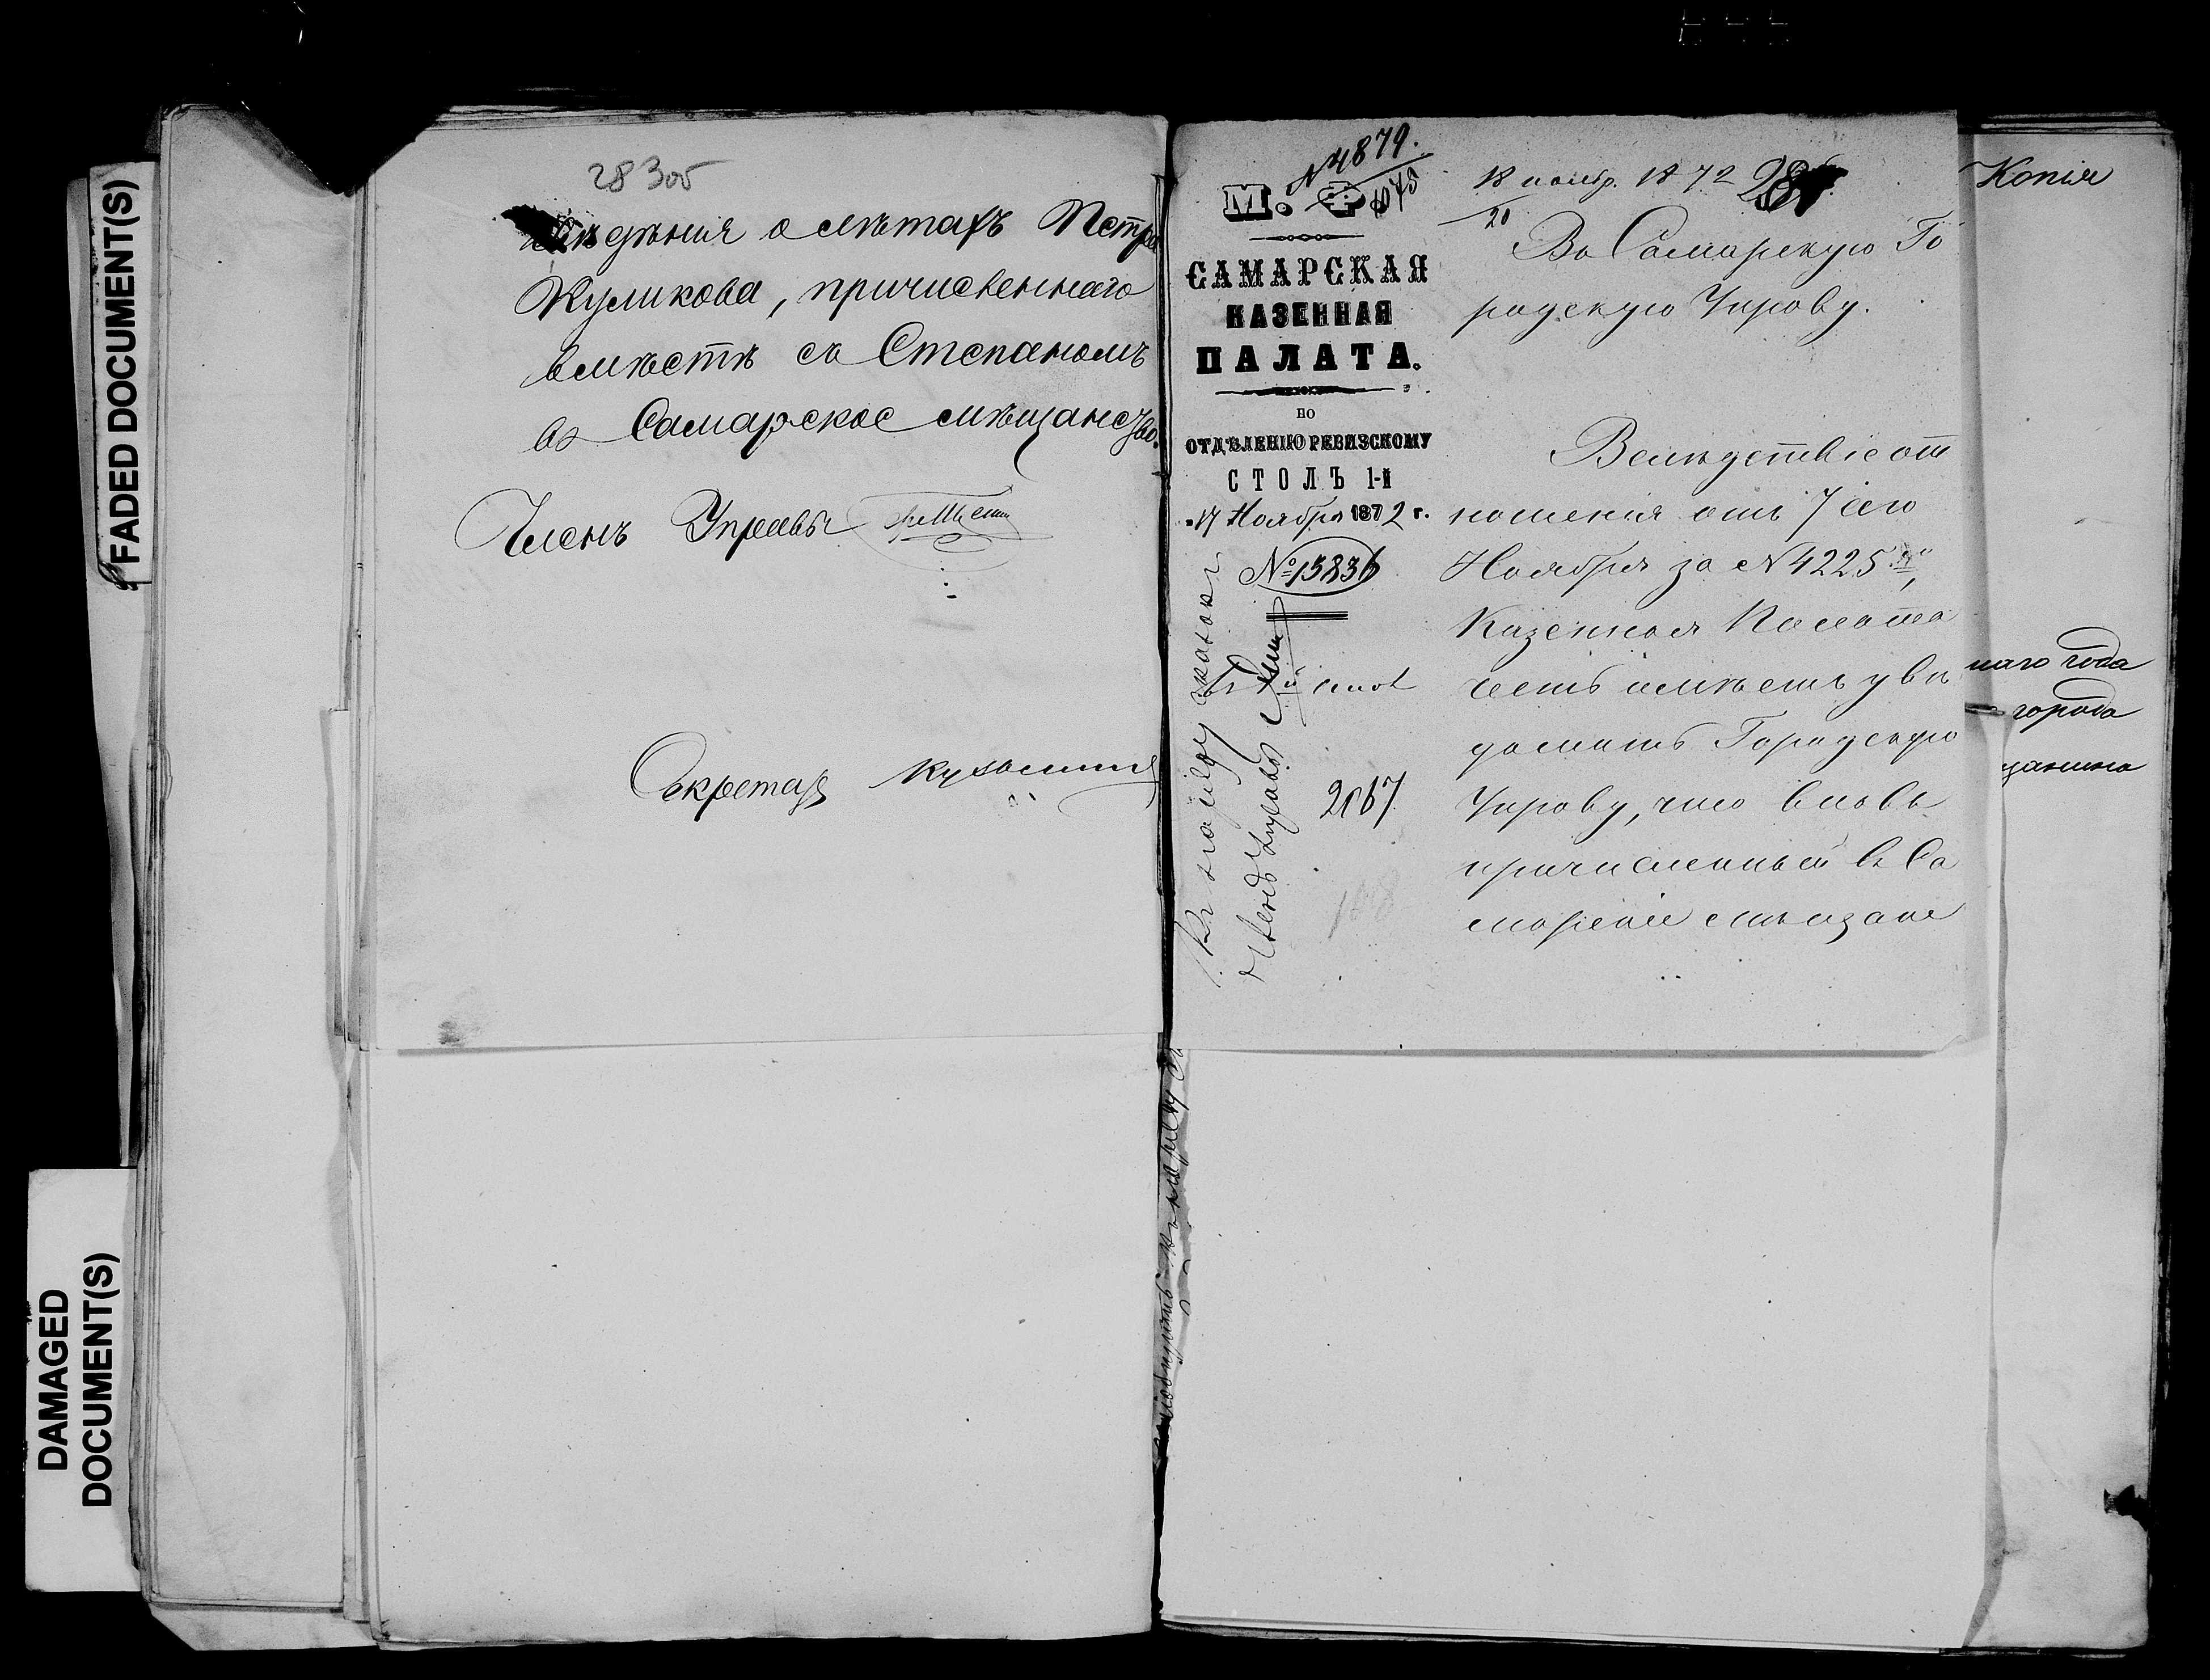 FADED DOCUMENT(S)
DAMAGED
DOCUMENT(S)
283об
свѣденія о лѣтахъ Петра
Куликова, причисленнаго
вмѣстѣ съ Степаномъ
въ Самарское мѣщанство.
Членъ Управы
Секретарь Кузьминъ
№4879.
М. Ф.
САМАРСКАЯ
КАЗЕННАЯ
ПАЛАТА.
ПО
ОТДѢЛЕНІЮ РЕВИЗСКОМУ
СТОЛЪ 1-й
„17 Ноября 1872 г.
№ 15836
2167
188
18 ноябр. 1872
20
Въ Самарскую Го
родскую Управу.
Вслѣдствіе от
ношенія отъ 7 сего
Ноября за №4225,
Казенная Палата
честь имѣетъ увѣ
домить Городскую
Управу, что вновь
причисленный въ Са
марскіе мѣщане
Копія
наго года
города
щанина